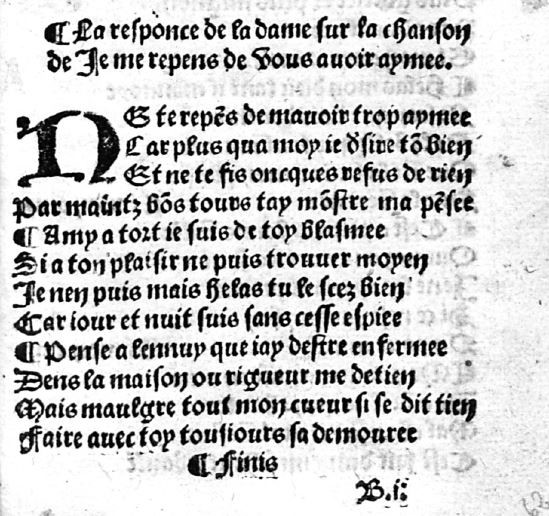 ¶ La responce de la dame sur la chanson
de Je me repens de vous auoir aymee.
NE te repēs de mauoir trop aymee
Car plus qua moy ie dsire tō bien
Et ne te fis oncques refus de rien
Par maintz bōs tours tay mōstre ma pēsee
¶ Amy a tort ie suis de toy blasmee
Si a ton plaisir ne puis trouuer moyen
Je nen puis mais helas tu le scez bien
Car iour et nuit suis sans cesse espiee
¶ Pense a lennuy que iay destre enfermee
Dens la maison ou rigueur me detien
Mais maulgre tout mon cueur si se dit tien
Faire auec toy tousiours sa demouree
¶ Finis
B.ii
62